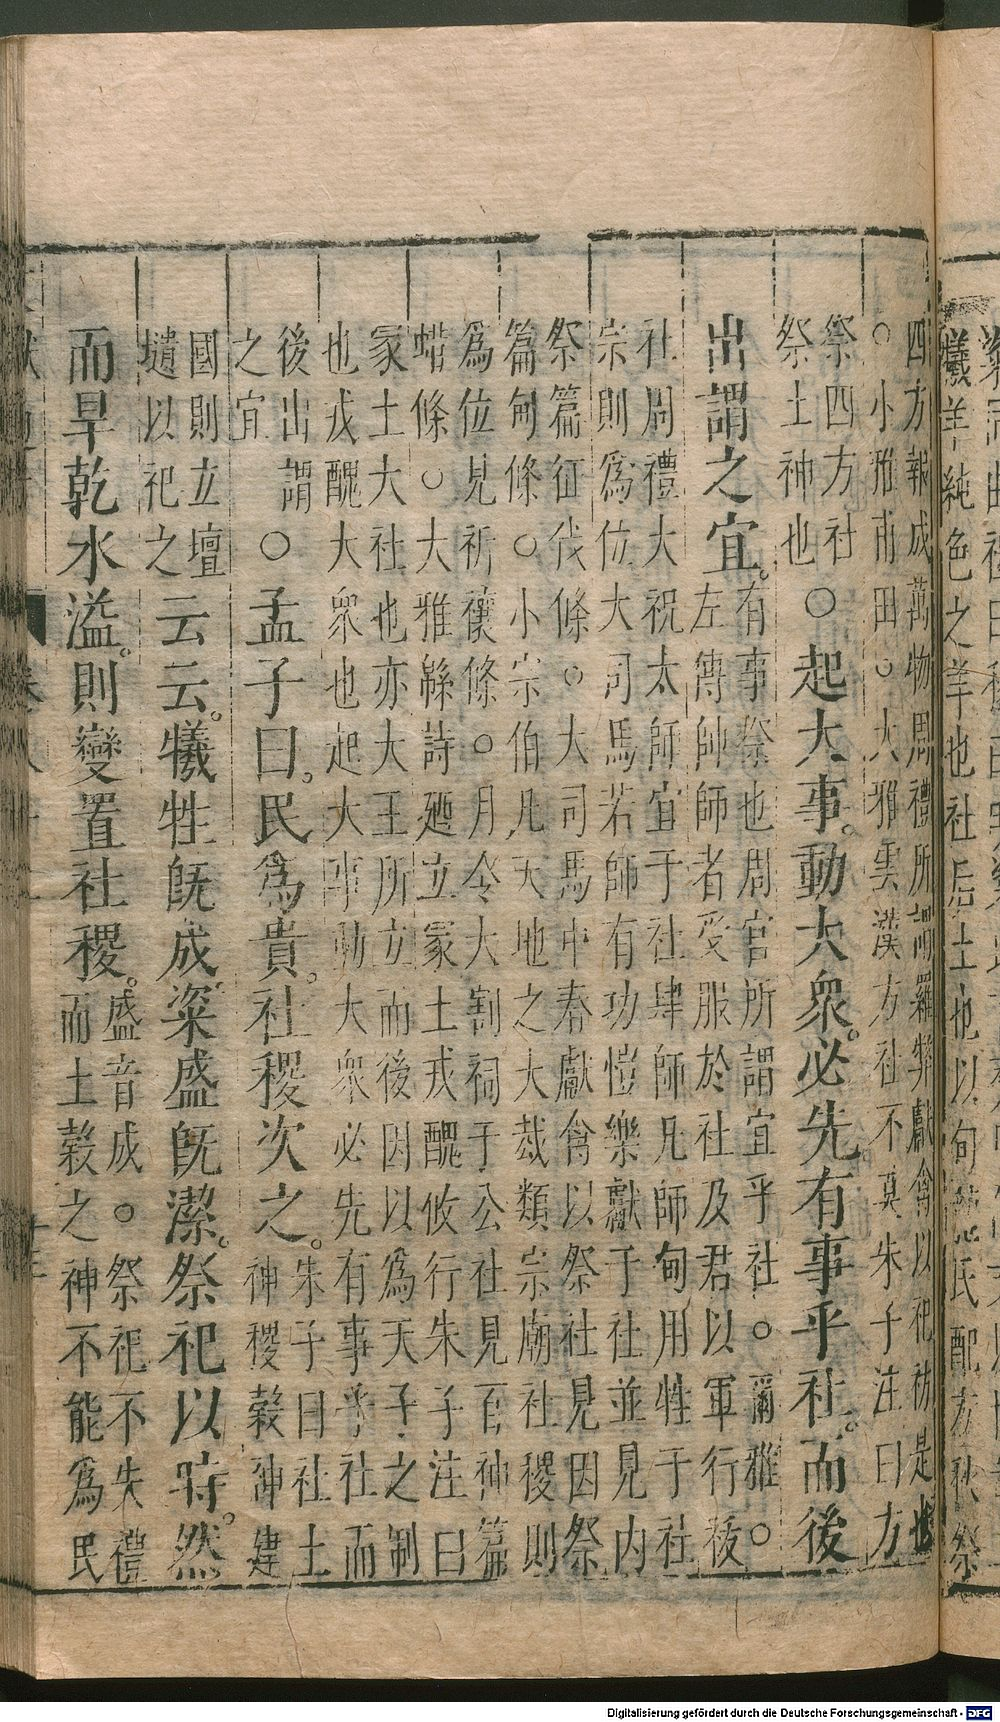 犧羊純色之羊也社后土也以句龍氏配方秋祭
四方報成萬物周禮所謂羅弊獻禽以祀祊是也
○小雅甫田○大雅雲漢方社不莫朱子注曰方
祭四方社
祭土神也
○起大事。動大衆。必先有事乎社。而後
出謂之宜。
有事祭也周官所謂宜乎社○爾雅○
左傳帥師者受脤於社及君以軍行祓
社周禮大祝太師宜于社肆師凡師甸用牲于社
宗則爲位大司馬若師有功愷樂獻于社並見内
祭篇征伐條○大司馬中春獻禽以祭社見因祭
篇甸條○小宗伯凡天地之大烖類宗廟社稷則
爲位見祈禳條○月令大割祠于公社見百神篇
蜡條○大雅緜詩廼立冢土戎醜攸行朱子注曰
冢土大社也亦大王所立而後因以爲天子之制
也戎醜大衆也起大事動大衆必先有事乎社而
後出謂
之宜
○孟子曰。民爲貴。社稷次之。
朱子曰社土
神稷穀神建
國則立壇
壝以祀之
云云。犧牲旣成。粢盛旣潔。祭祀以時。然
而旱乾水溢。則變置社稷。
盛音成○祭祀不失禮
而土穀之神不能爲民
Digitalisierung gefördert durch die Deutsche Forschungsgemeinschaft - DFG